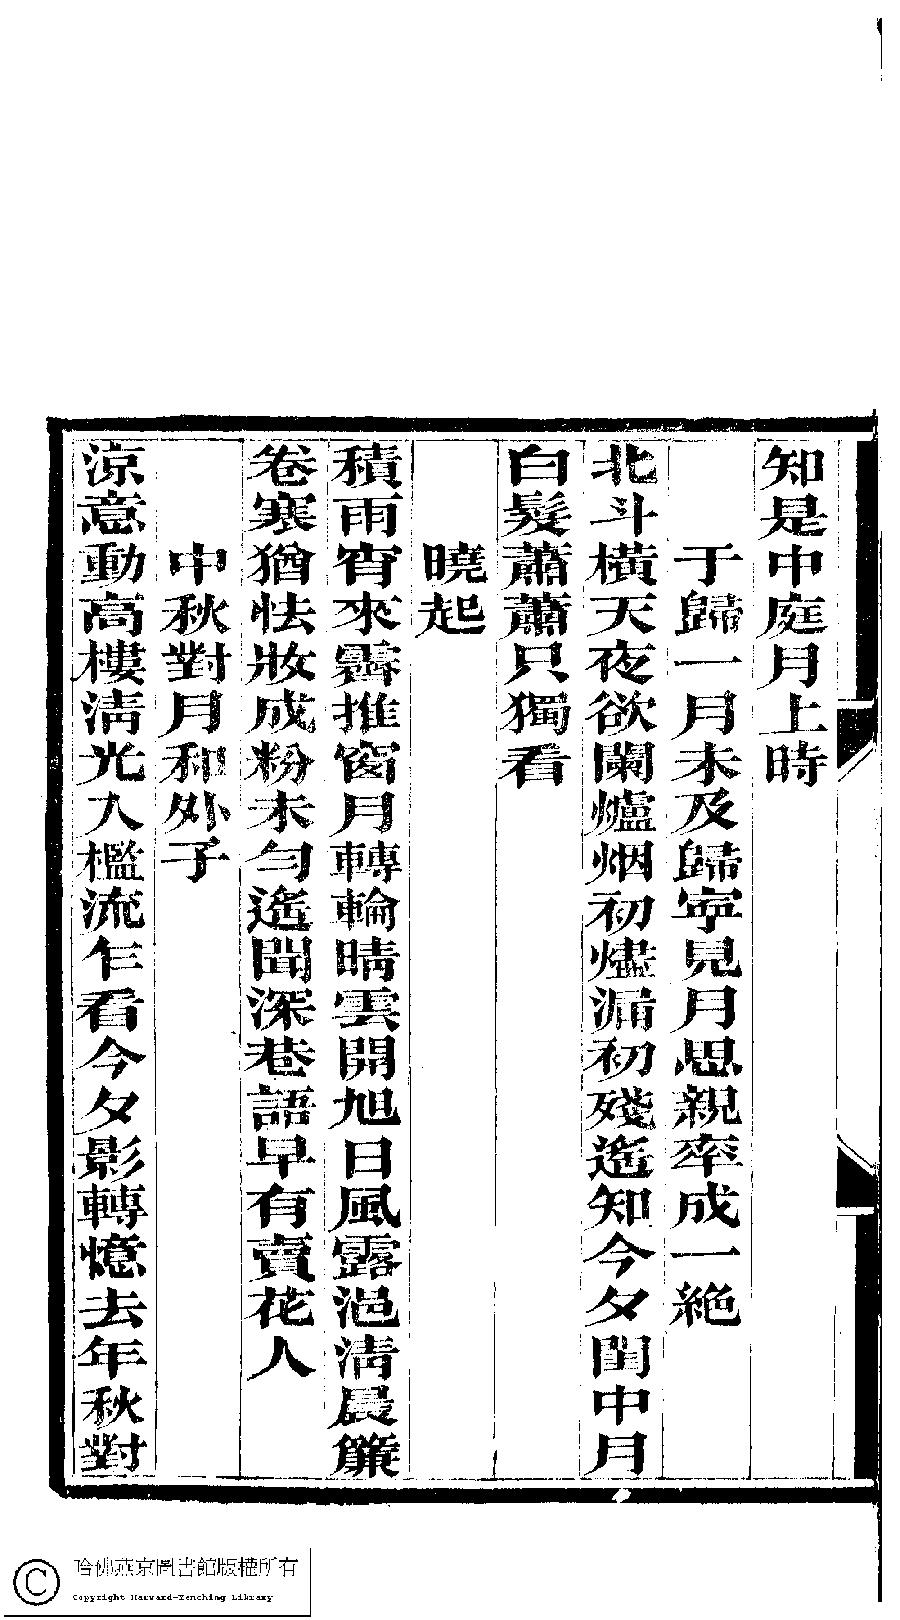 知是中庭月上時
于歸一月未及歸寧見月思親率成一絶
北斗橫天夜欲闌爐烟初燼漏初殘遙知今夕閨中月
白髮蕭蕭只獨看
曉起
積雨宵來霽推窗月轉輪晴雲開旭日風露浥清晨簾
卷寒猶怯妝成粉未勻遙聞深巷語早有賣花人
中秋對月和外子
涼意動高樓清光入檻流乍看今夕影轉憶去年秋對
哈佛燕京圖書館版權所有
Copyright Harvard-Yenching Library